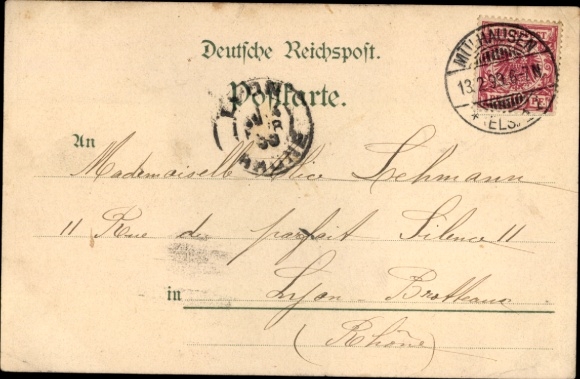 Deutsche Reichspost.
Postkarte.
MÜLHAUSEN
13.2.99. 6-7N.
* ELS.
LYON
RHONE
An
Mademoiselle Alice Lehmann
11 Rue du parfait Silence 11
in Lyon - Brotteaux
(Rhône)